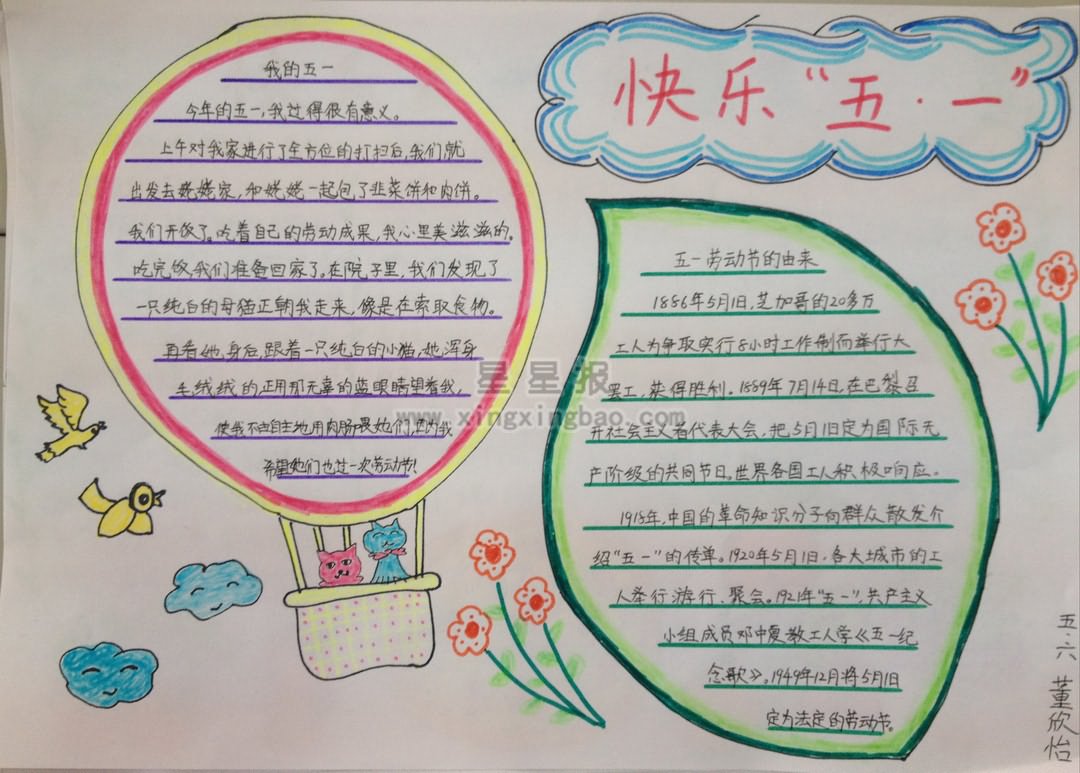 快乐“五·一”
我的五一
今年的五一,我过得很有意义。
上午对我家进行了全方位的打扫后,我们就
出发去姥姥家,和姥姥一起包了韭菜饼和肉饼。
我们开饭了。吃着自己的劳动成果,我心里美滋滋的。
吃完饭,我们准备回家了。在院子里,我们发现了
一只纯白的母猫正朝我走来,像是在索取食物。
再看她,身后,跟着一只纯白的小猫,她浑身
毛绒绒的,正用那无辜的蓝眼睛望着我,
使我不由自主地用肉肠喂她们,因为我
希望她们也过一次劳动节!
五一劳动节的由来
1886年5月1日,芝加哥的20多万
工人为争取实行8小时工作制而举行大
罢工,获得胜利。1889年7月14日,在巴黎召
开社会主义者代表大会,把5月1日定为国际无
产阶级的共同节日。世界各国工人积极响应。
1918年,中国的革命知识分子向群众散发介
绍“五一”的传单。1920年5月1日,各大城市的工
人举行游行、聚会。1921年“五一”,共产主义
小组成员邓中夏教工人学《五一纪
念歌》。1949年12月将5月1日
定为法定的劳动节。
五·六 董欣怡
星星报
www.xingxingbao.com